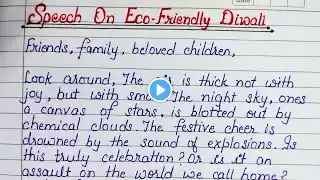 Speech On Eco-Friendly Diwali
Friends, family, beloved children,
Look around, The is thick not with
joy, but with The night sky, ones
a canvas of stars, is blotted out by
chemical clouds. The festive cheer is
drowned by the sound of explosions. Is
this truly celebration? Or is it an
assault on the world we call home?